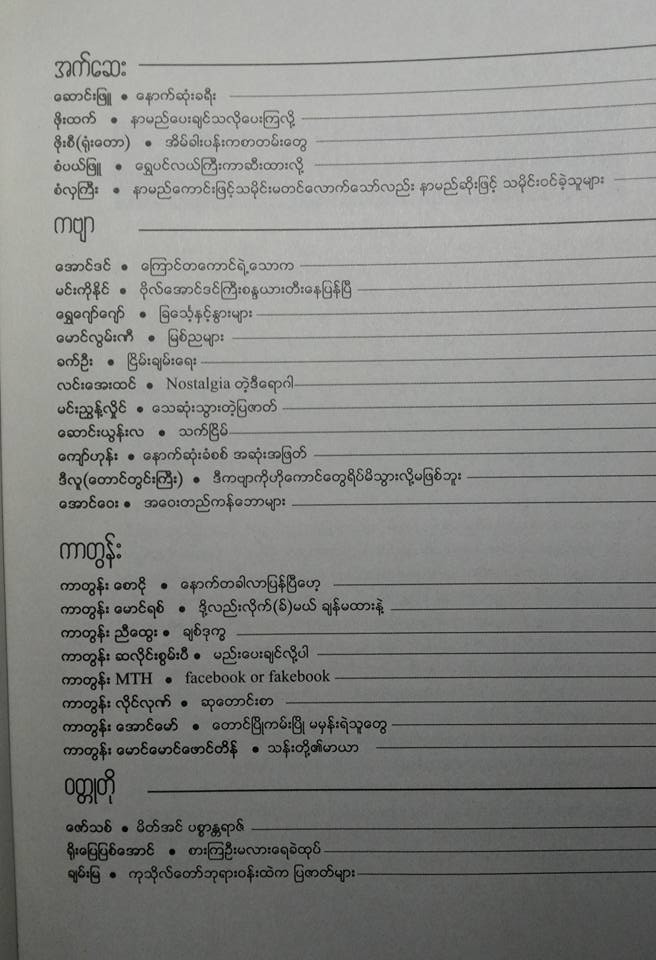 အက်ဆေး
ဆောင်းဖြူ • နောက်ဆုံးခရီး
ဖိုးထက် • နာမည်ပေးချင်သလိုပေးကြလို့
ဖိုးစီ(ရုံးတော) • အိမ်ခါးပန်းကစာတမ်းတွေ
စံပယ်ဖြူ • ရွှေပင်လယ်ကြီးကာဆီးထားလို့
စံလှကြီး • နာမည်ကောင်းဖြင့်သမိုင်းမတင်လောက်သော်လည်း နာမည်ဆိုးဖြင့် သမိုင်းဝင်ခဲ့သူများ
ကဗျာ
အောင်ဒင် • ကြောင်တကောင်ရဲ့သောက
မင်းကိုနိုင် • ဗိုလ်အောင်ဒင်ကြီးစန္ဒယားတီးနေပြန်ပြီ
ရွှေဂျော်ဂျော် • ခြင်္သေ့နှင့်နွားများ
မောင်လွမ်းဏီ • မြစ်ညများ
ခက်ဦး • ငြိမ်းချမ်းရေး
လင်းအေးထင် • Nostalgia တဲ့ဒီရောဂါ
မင်းညွန့်လှိုင် • သေဆုံးသွားတဲ့ပြဇာတ်
ဆောင်းယွန်းလ • သက်ငြိမ်
ကျော်ဟုန်း • နောက်ဆုံးခံစစ် အဆုံးအဖြတ်
ဒီလူ(တောင်တွင်းကြီး) • ဒီကဗျာကိုဟိုကောင်တွေရိပ်မိသွားလို့မဖြစ်ဘူး
အောင်ဝေး • အဝေးတည်ကန်ဘောများ
ကာတွန်း
ကာတွန်း စောငို • နောက်တခါလာပြန်ပြီဟေ့
ကာတွန်း မောင်ရစ် • ဒို့လည်းလိုက်(ခ်)မယ် ချန်မထားနဲ့
ကာတွန်း ညီထွေး • ချစ်ဒုက္ခ
ကာတွန်း ဆလိုင်းစွမ်းပီ • မည်းပေးချင်လို့ပါ
ကာတွန်း MTH • facebook or fakebook
ကာတွန်း လိုင်လုဏ် • ဆုတောင်းစာ
ကာတွန်း အောင်မော် • တောင်ပြိုကမ်းပြို မမှုန်းရဲသူတွေ
ကာတွန်း မောင်မောင်ဖောင်တိန် • သန်းတို့၏မာယာ
ဝတ္ထုတို
ဇော်သစ် • မိတ်အင် ပစ္စာန္တရာဇ်
ရိုးမြေပြစ်အောင် • စားကြဦးမလားရေခဲထုပ်
ချမ်းမြ • ကုသိုလ်တော်ဘုရားဝန်းထဲက ပြဇာတ်များ